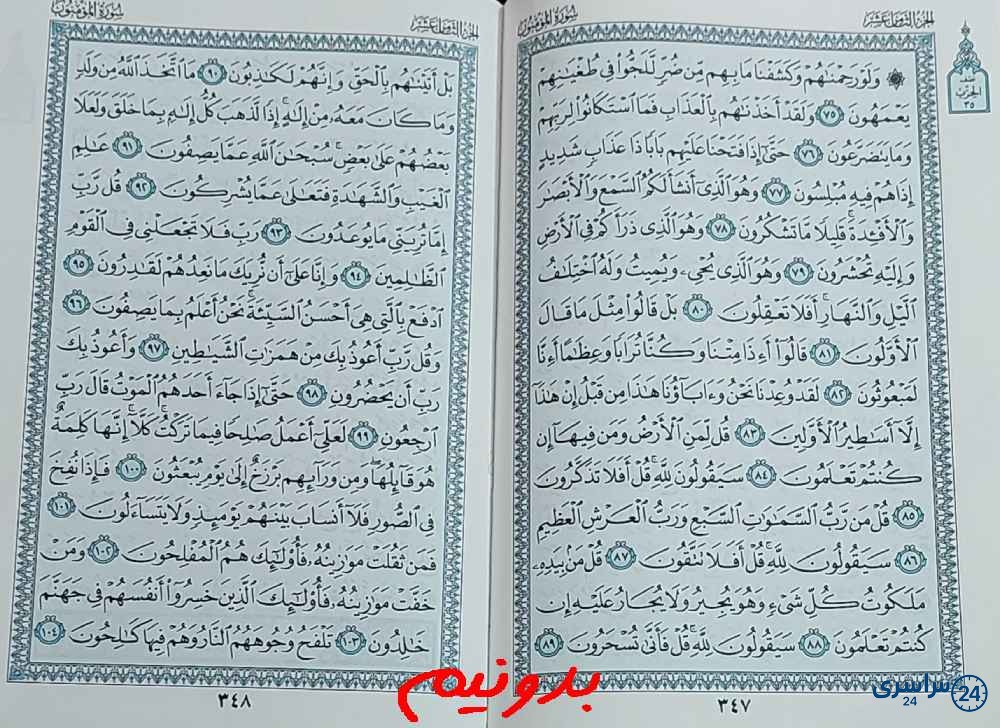 الجزء الثامن عشر
سورة المؤمنون
نصف
الحزب
٣٥
وَلَوْ رَحِمْنَٰهُمْ وَكَشَفْنَا مَا بِهِم مِّن ضُرٍّ لَّلَجُّوا۟ فِى طُغْيَٰنِهِمْ
يَعْمَهُونَ ٧٥ وَلَقَدْ أَخَذْنَٰهُم بِٱلْعَذَابِ فَمَا ٱسْتَكَانُوا۟ لِرَبِّهِمْ
وَمَا يَتَضَرَّعُونَ ٧٦ حَتَّىٰٓ إِذَا فَتَحْنَا عَلَيْهِم بَابًا ذَا عَذَابٍ شَدِيدٍ
إِذَا هُمْ فِيهِ مُبْلِسُونَ ٧٧ وَهُوَ ٱلَّذِىٓ أَنشَأَ لَكُمُ ٱلسَّمْعَ وَٱلْأَبْصَٰرَ
وَٱلْأَفْـِٔدَةَ ۚ قَلِيلًا مَّا تَشْكُرُونَ ٧٨ وَهُوَ ٱلَّذِى ذَرَأَكُمْ فِى ٱلْأَرْضِ
وَإِلَيْهِ تُحْشَرُونَ ٧٩ وَهُوَ ٱلَّذِى يُحْىِۦ وَيُمِيتُ وَلَهُ ٱخْتِلَٰفُ
ٱلَّيْلِ وَٱلنَّهَارِ ۚ أَفَلَا تَعْقِلُونَ ٨٠ بَلْ قَالُوا۟ مِثْلَ مَا قَالَ
ٱلْأَوَّلُونَ ٨١ قَالُوٓا۟ أَءِذَا مِتْنَا وَكُنَّا تُرَابًا وَعِظَٰمًا أَءِنَّا
لَمَبْعُوثُونَ ٨٢ لَقَدْ وُعِدْنَا نَحْنُ وَءَابَآؤُنَا هَٰذَا مِن قَبْلُ إِنْ هَٰذَآ
إِلَّآ أَسَٰطِيرُ ٱلْأَوَّلِينَ ٨٣ قُل لِّمَنِ ٱلْأَرْضُ وَمَن فِيهَآ إِن
كُنتُمْ تَعْلَمُونَ ٨٤ سَيَقُولُونَ لِلَّهِ ۚ قُلْ أَفَلَا تَذَكَّرُونَ
٨٥ قُلْ مَن رَّبُّ ٱلسَّمَٰوَٰتِ ٱلسَّبْعِ وَرَبُّ ٱلْعَرْشِ ٱلْعَظِيمِ
٨٦ سَيَقُولُونَ لِلَّهِ ۚ قُلْ أَفَلَا تَتَّقُونَ ٨٧ قُلْ مَنۢ بِيَدِهِۦ
مَلَكُوتُ كُلِّ شَىْءٍ وَهُوَ يُجِيرُ وَلَا يُجَارُ عَلَيْهِ إِن
كُنتُمْ تَعْلَمُونَ ٨٨ سَيَقُولُونَ لِلَّهِ ۚ قُلْ فَأَنَّىٰ تُسْحَرُونَ ٨٩
٣٤٧
الجزء الثامن عشر
سورة المؤمنون
بَلْ أَتَيْنَٰهُم بِٱلْحَقِّ وَإِنَّهُمْ لَكَٰذِبُونَ ٩٠ مَا ٱتَّخَذَ ٱللَّهُ مِن وَلَدٍ
وَمَا كَانَ مَعَهُۥ مِنْ إِلَٰهٍ ۚ إِذًا لَّذَهَبَ كُلُّ إِلَٰهٍۭ بِمَا خَلَقَ وَلَعَلَا
بَعْضُهُمْ عَلَىٰ بَعْضٍ ۚ سُبْحَٰنَ ٱللَّهِ عَمَّا يَصِفُونَ ٩١ عَٰلِمِ
ٱلْغَيْبِ وَٱلشَّهَٰدَةِ فَتَعَٰلَىٰ عَمَّا يُشْرِكُونَ ٩٢ قُل رَّبِّ
إِمَّا تُرِيَنِّى مَا يُوعَدُونَ ٩٣ رَبِّ فَلَا تَجْعَلْنِى فِى ٱلْقَوْمِ
ٱلظَّٰلِمِينَ ٩٤ وَإِنَّا عَلَىٰٓ أَن نُّرِيَكَ مَا نَعِدُهُمْ لَقَٰدِرُونَ ٩٥
ٱدْفَعْ بِٱلَّتِى هِىَ أَحْسَنُ ٱلسَّيِّئَةَ ۚ نَحْنُ أَعْلَمُ بِمَا يَصِفُونَ ٩٦
وَقُل رَّبِّ أَعُوذُ بِكَ مِنْ هَمَزَٰتِ ٱلشَّيَٰطِينِ ٩٧ وَأَعُوذُ بِكَ
رَبِّ أَن يَحْضُرُونِ ٩٨ حَتَّىٰٓ إِذَا جَآءَ أَحَدَهُمُ ٱلْمَوْتُ قَالَ رَبِّ
ٱرْجِعُونِ ٩٩ لَعَلِّىٓ أَعْمَلُ صَٰلِحًا فِيمَا تَرَكْتُ ۚ كَلَّآ ۚ إِنَّهَا كَلِمَةٌ
هُوَ قَآئِلُهَا ۖ وَمِن وَرَآئِهِم بَرْزَخٌ إِلَىٰ يَوْمِ يُبْعَثُونَ ١٠٠ فَإِذَا نُفِخَ
فِى ٱلصُّورِ فَلَآ أَنسَابَ بَيْنَهُمْ يَوْمَئِذٍ وَلَا يَتَسَآءَلُونَ ١٠١
فَمَن ثَقُلَتْ مَوَٰزِينُهُۥ فَأُو۟لَٰٓئِكَ هُمُ ٱلْمُفْلِحُونَ ١٠٢ وَمَنْ
خَفَّتْ مَوَٰزِينُهُۥ فَأُو۟لَٰٓئِكَ ٱلَّذِينَ خَسِرُوٓا۟ أَنفُسَهُمْ فِى جَهَنَّمَ
خَٰلِدُونَ ١٠٣ تَلْفَحُ وُجُوهَهُمُ ٱلنَّارُ وَهُمْ فِيهَا كَٰلِحُونَ ١٠٤
٣٤٨
بدونیم
سراسری 24
24